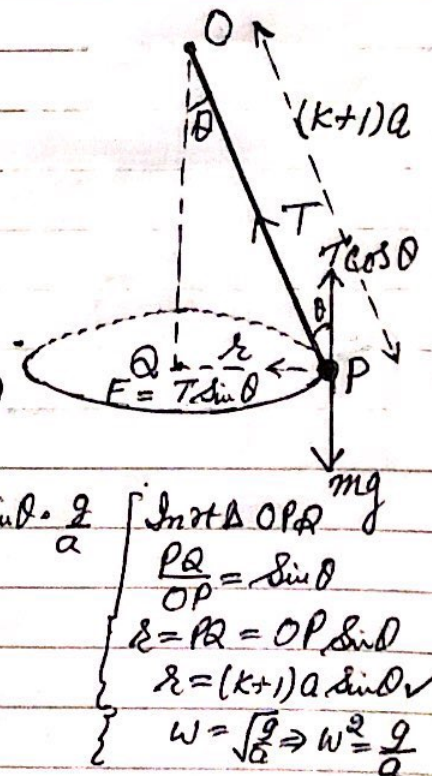 O
θ
(K+1)a
T
Tcosθ
θ
Q
r
P
F = Tsinθ
mg
inθ · g/a
In rt Δ OPQ
PQ/OP = Sinθ
r = PQ = OP Sinθ
r = (K+1)a sinθ ✓
w = √(g/a) ⇒ w² = g/a